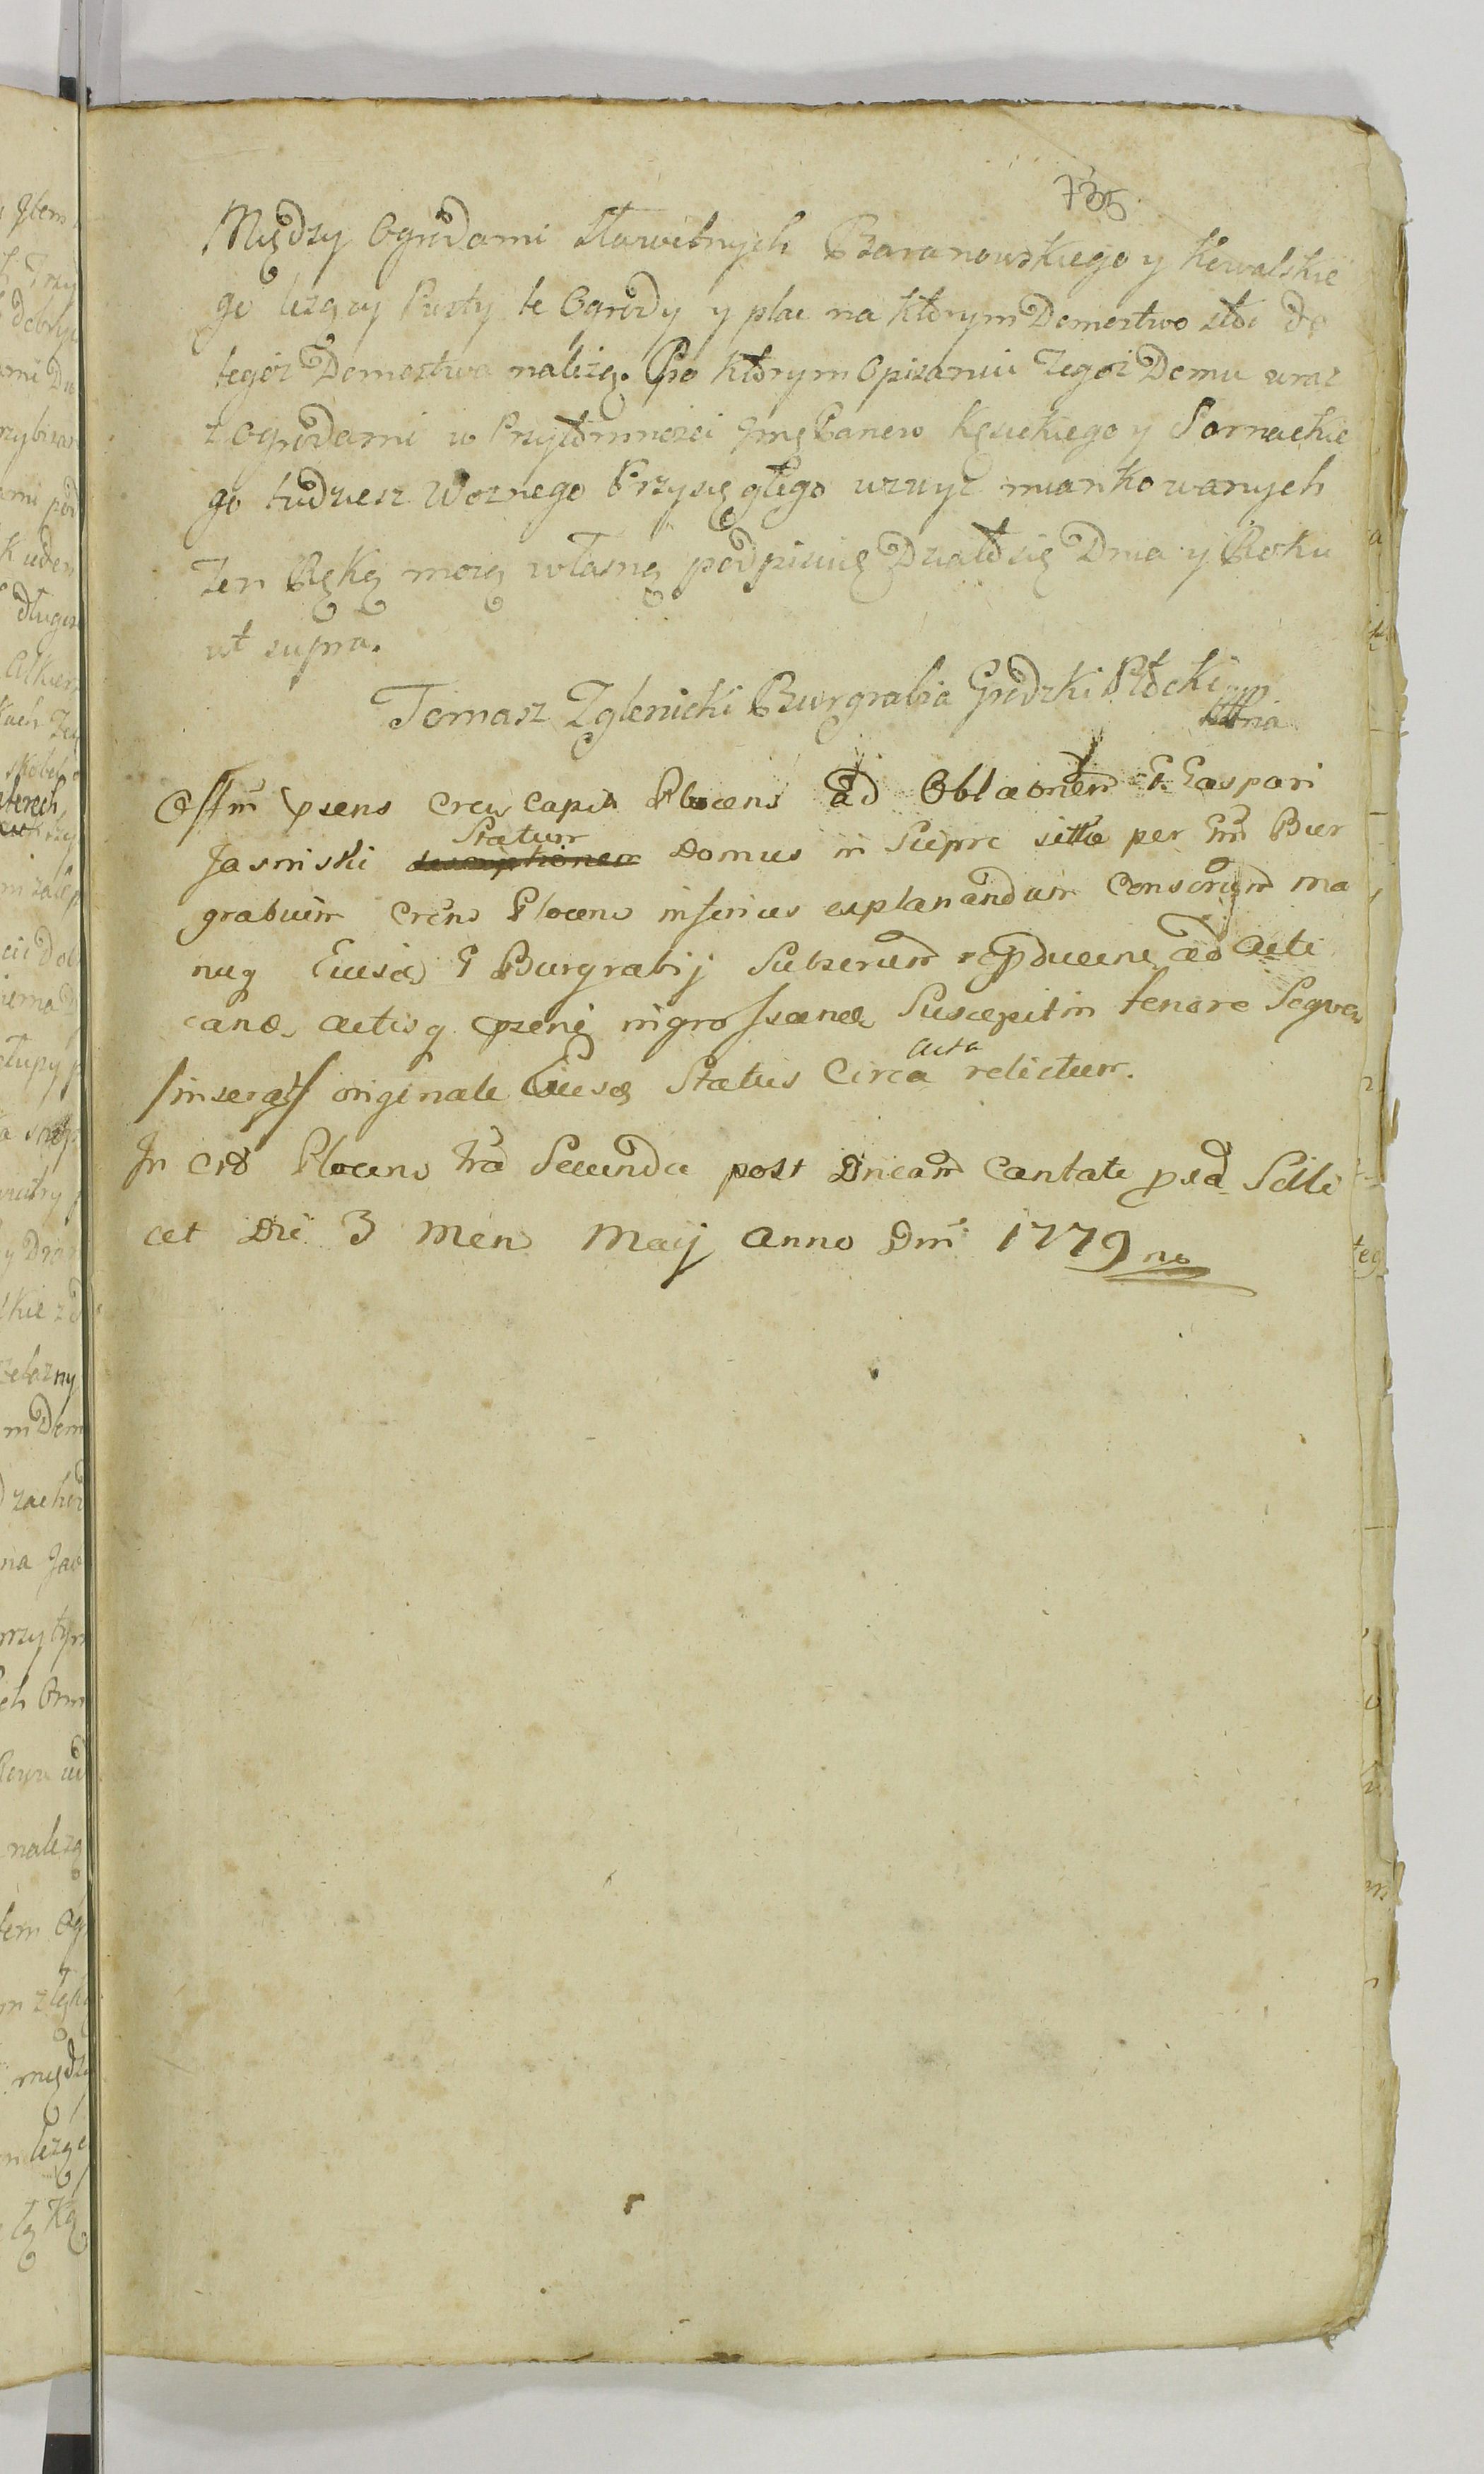 735
Między Ogrodami sławetnych Baranowskiego y Kowalskie
go leżący Pusty te Ogrody y plac na którym Domostwo stoi do
tegoż Domostwa należą. Po którym Opisaniu Tegoż Domu wraz
z Ogrodami w Przytomnosci Imę Panow Kęsickiego y Sarnackie
go tudziesz Woznego Przysięgłego wzwyż miankowanych
Ten Ręką moią własną podpisuię Działo się Dnia y Roku
ut supra.
Tomasz Zglenicki Burgrabia Grodzki Płocki mp
Offm psens Crew Capit Plocens ad Oblaonem G Caspari
Statum
Jasinski descriptionem Domus in Sieprc sittæ per Gm Bur
grabium Crens Plocens inferius explanandum Conscrium ma
nuq Eiusd G Burgrabij Subscrium repducenē ad Acti
cand. Actisq psenē ingrossand Suscepit in tenore Seqven
Acta
/inserat/ originale Eiusd Status Circa relictum.
In Crō Plocens fra Secunda post Dncam Cantate pxa Scili
cet Die 3 Mens Maij Anno Dni 1779 no